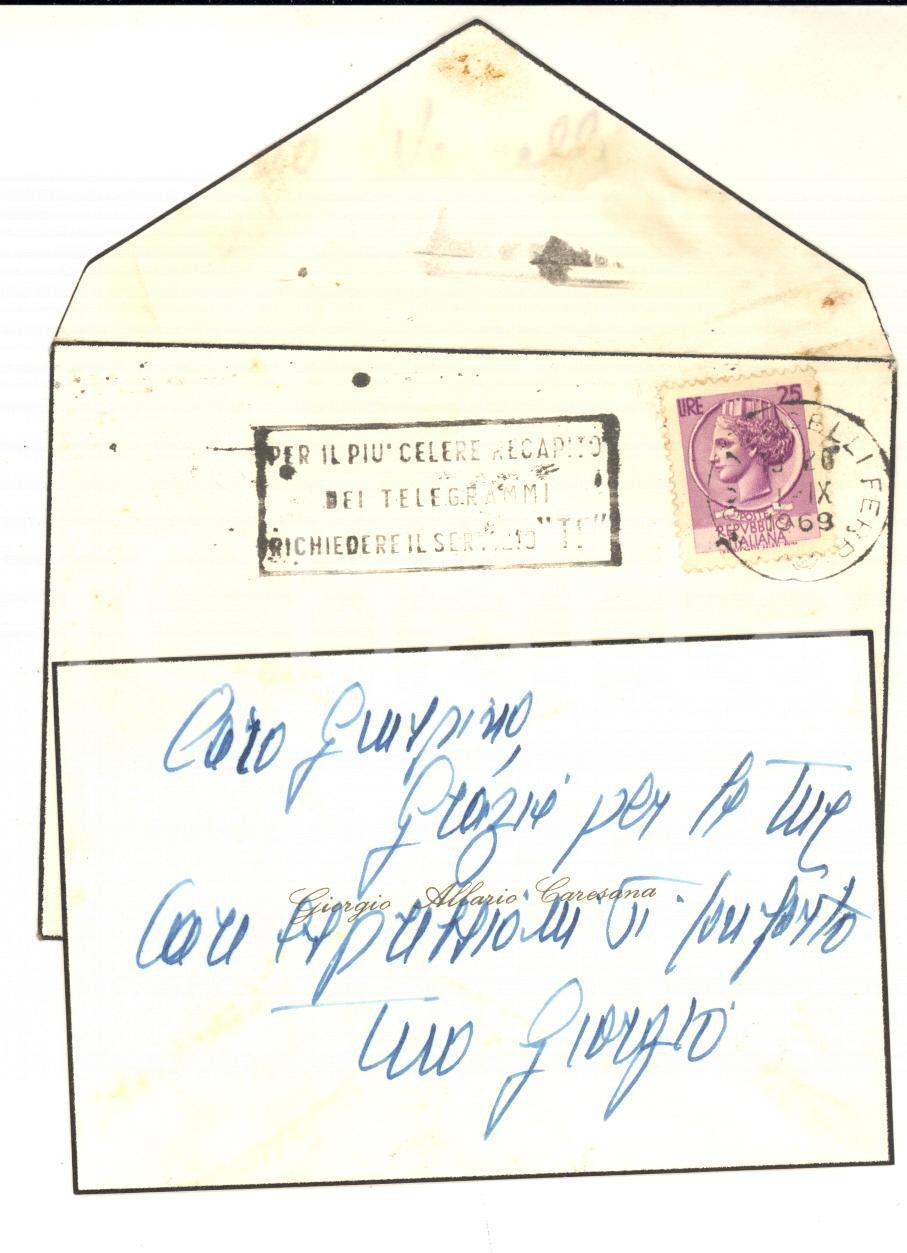 PER IL PIU' CELERE RECAPITO
DEI TELEGRAMMI
RICHIEDERE IL SERVIZIO "TF"
LIRE 25
POSTE
REPVBBLICA
ITALIANA
IX
1969
Caro Giuseppino
Grazie per le Tue
Giorgio Allario Caresana
Care espressioni di conforto
Tuo Giorgio